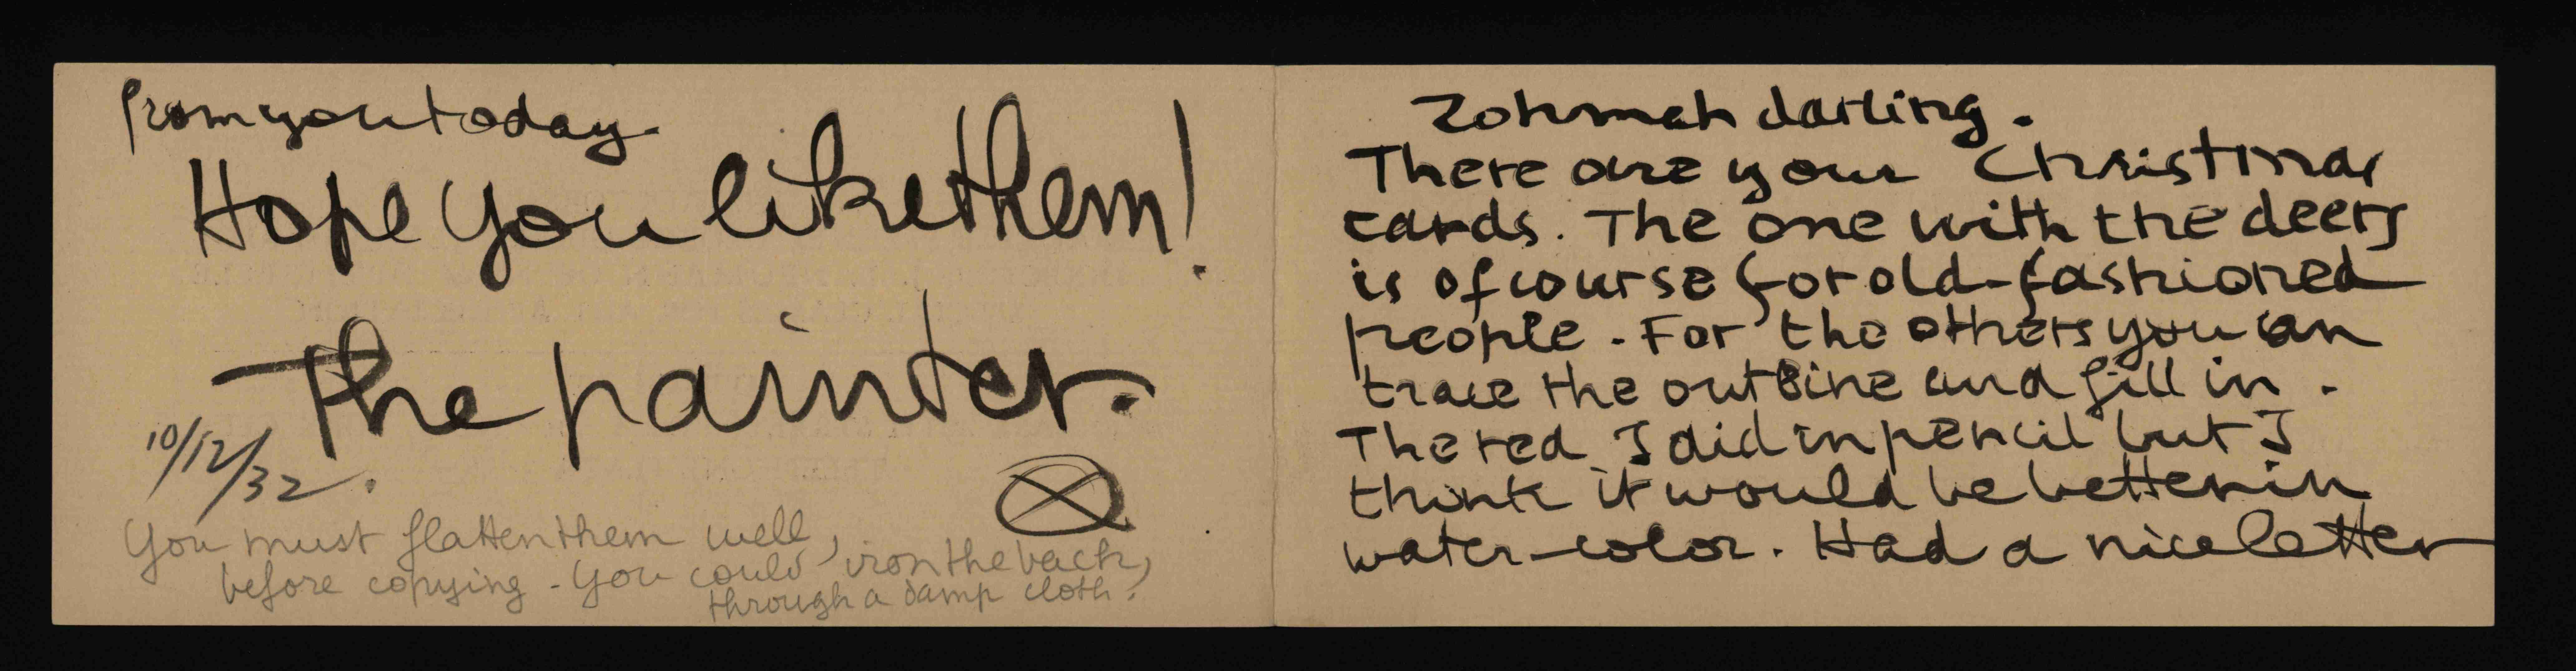 Zohmah darling.
There are your Christmas
cards. The one with the deers
is of course for old-fashioned
people. For the others you can
trace the outline and fill in.
The red I did in pencil but I
think it would be better in
water-color. Had a nice letter
from you today.
Hope you like them!
The painter.
10/12/32.
You must flatten them well,
before copying - You could iron the back,
through a damp cloth.